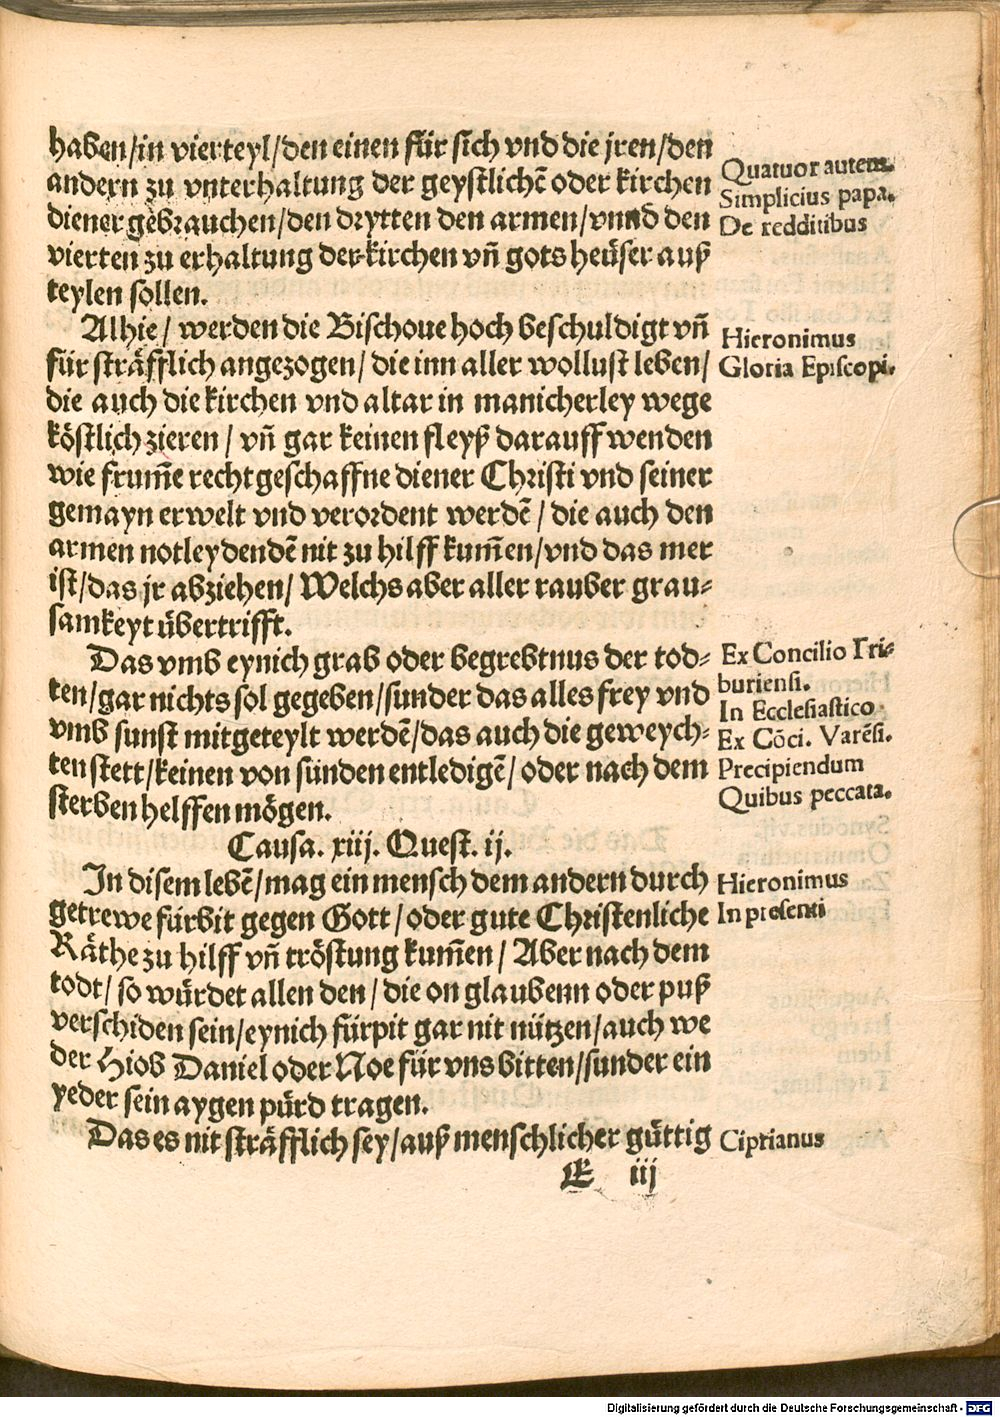 haben/in vierteyl/den einen für sich vnd die jren/den
andern zu vnterhaltung der geystlichē oder kirchen
diener gebrauchen/den drytten den armen/vnnd den
vierten zu erhaltung der kirchen vn̄ gots heüser auß
teylen sollen.
Quatuor autem.
Simplicius papa.
De redditibus
Alhie/ werden die Bischoue hoch beschuldigt vn̄
für sträfflich angezogen/ die inn aller wollust leben/
die auch die kirchen vnd altar in manicherley wege
köstlich zieren/ vn̄ gar keinen fleyß darauff wenden
wie frum̄e recht geschaffne diener Christi vnd seiner
gemayn erwelt vnd verordent werdē/ die auch den
armen notleydendē nit zu hilff kum̄en/vnd das mer
ist/das jr abziehen/ Welchs aber aller rauber grau⸗
samkeyt übertrifft.
Hieronimus
Gloria Episcopi.
Das vmb eynich grab oder begrebtnus der tod⸗
ten/gar nichts sol gegeben/sunder das alles frey vnd
vmb sunst mitgeteylt werdē/das auch die geweych⸗
ten stett/keinen von sünden entledigē/ oder nach dem
sterben helffen mögen.
Ex Concilio Tri-
buriensi.
In Ecclesiastico
Ex Cōci. Varēsi.
Precipiendum
Quibus peccata.
Causa. xiij. Quest. ij.
In disem lebē/mag ein mensch dem andern durch
getrewe fürbit gegen Gott/oder gute Christenliche
Räthe zu hilff vn̄ tröstung kum̄en/ Aber nach dem
todt/ so würdet allen den/ die on glaubenn oder puß
verschiden sein/eynich fürpit gar nit nützen/auch we
der Hiob Daniel oder Noe für vns bitten/sunder ein
yeder sein aygen pürd tragen.
Hieronimus
In presenti
Das es nit sträfflich sey/auß menschlicher güttig
Ciprianus
E iij
Digitalisierung gefördert durch die Deutsche Forschungsgemeinschaft - DFG